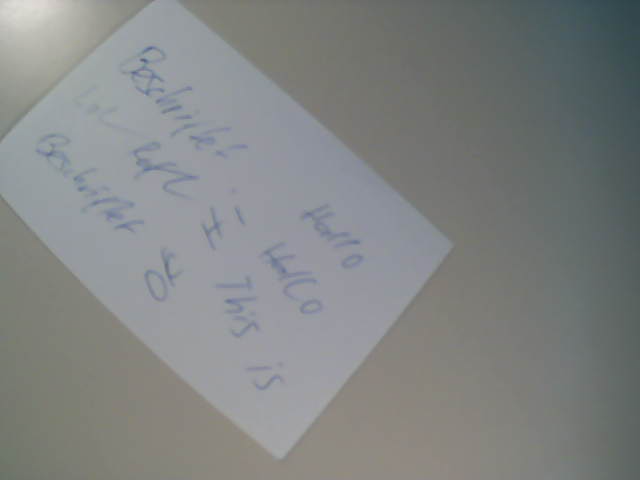 Hallo
Beschriftet :- Hallo
Lol rofl I This is
Beschriftet